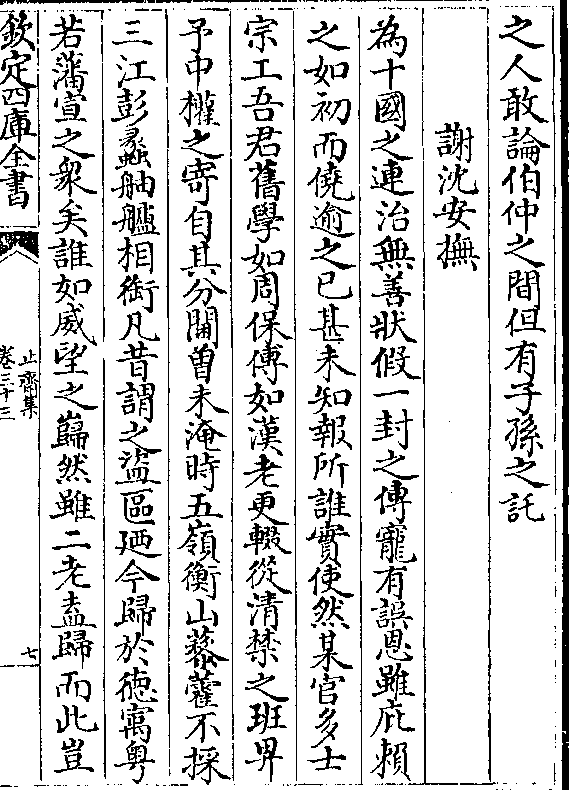 之人敢論伯仲之間但有子孫之託
謝沈安撫
為十國之連治無善狀假一封之傳寵有誤恩雖庇賴
之如初而僥逾之已甚未知報所誰實使然某官多士
宗工吾君舊學如周保傅如漢老更輟從清禁之班畀
予中權之寄自其分閫曽未淹時五嶺衡山藜藿不採
三江彭蠡舳艫相銜凡昔謂之盜區廼今歸於徳寓粤
若藩宣之衆矣誰如威望之巋然雖二老盍歸而此豈
欽定四庫全書
止齋集
卷三十三
七